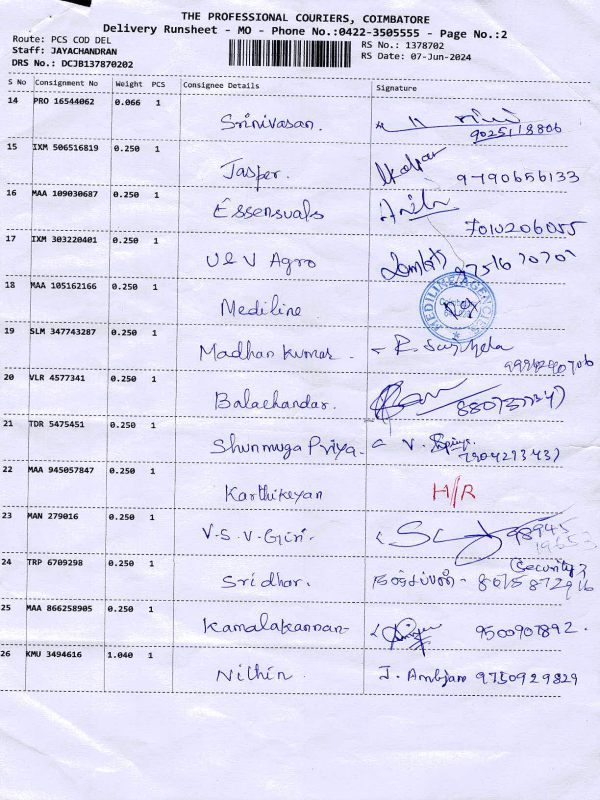 THE PROFESSIONAL COURIERS, COIMBATORE
Delivery Runsheet - MO - Phone No.:0422-3505555 - Page No.:2
Route: PCS COD DEL
Staff: JAYACHANDRAN
DRS No.: DCJB137870202
RS No.: 1378702
RS Date: 07-Jun-2024
S No Consignment No Weight PCS Consignee Details Signature
14 PRO 16544062 0.066 1
Srinivasan.
9025118806
15 IXM 506516819 0.250 1
Jasper.
9790656133
16 MAA 109030687 0.250 1
Essensuals
7010206055
17 IXM 303220401 0.250 1
U & V Agro
18 MAA 105162166 0.250 1
Mediline
MEDILINE AGENCIES
19 SLM 347743287 0.250 1
Madhan kumar.
20 VLR 4577341 0.250 1
Balachandar.
21 TDR 5475451 0.250 1
Shunmuga Priya.
22 MAA 945057847 0.250 1
Karthikeyan H/R
23 MAN 279016 0.250 1
V.S.V.Giri.
24 TRP 6709298 0.250 1
(Security)
Sridhar.
25 MAA 866258905 0.250 1
Kamalakannan
9500907892.
26 KMU 3494616 1.040 1
Nithin J. 9750929829